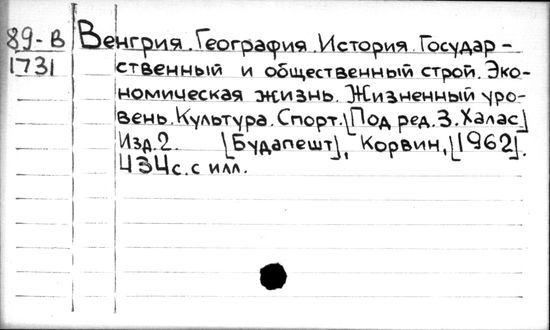 89-В Венгрия. География. История. Государ-
1731 ственный и общественный строй. Эко-
номическая жизнь. Жизненный уро-
вень. Культура. Спорт. [Под ред. З. Халас]
Изд. 2. [Будапешт], Корвин, [1962].
434с. с илл.